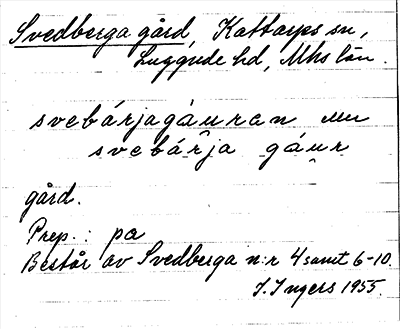 Svedberga gård, Kattarps sn,
Luggude hd, Mhs län.
svebárjagáuran
svebárja gáur
gård.
Prep.: pa
Består av Svedberga n:r 4 samt 6-10.
I. Ingers 1955.